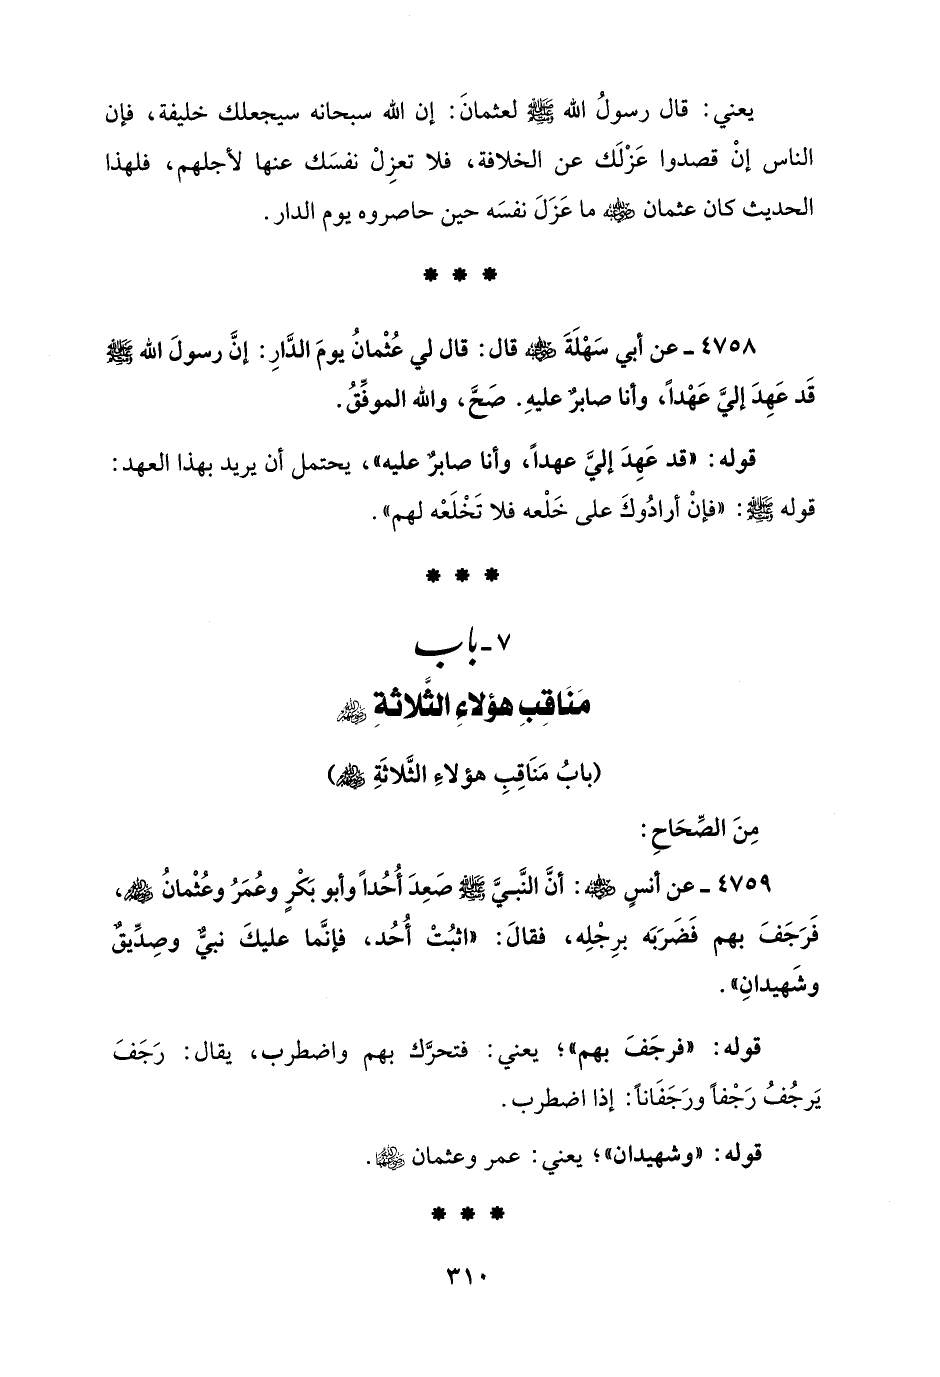 يعني: قال رسولُ الله ﷺ لعثمانَ: إن الله سبحانه سيجعلك خليفة، فإن
الناس إنْ قصدوا عَزْلَك عن الخلافة، فلا تعزِلْ نفسَك عنها لأجلهم، فلهذا
الحديث كان عثمان رضي الله عنه ما عَزَلَ نفسَه حين حاصروه يوم الدار.
* * *
٤٧٥٨ - عن أبي سَهْلَةَ رضي الله عنه قال: قال لي عُثْمانُ يومَ الدَّارِ: إنَّ رسولَ الله ﷺ
قَد عَهِدَ إليَّ عَهْداً، وأنا صابرٌ عليهِ. صَحَّ، والله الموفِّقُ.
قوله: «قد عَهِدَ إليَّ عهداً، وأنا صابرٌ عليه»، يحتمل أن يريد بهذا العهد:
قوله ﷺ: «فإنْ أرادُوكَ على خَلْعه فلا تَخْلَعْه لهم».
* * *
٧ - باب
مَنَاقِبِ هؤلاءِ الثَّلاثةِ رضي الله عنهم
(بابُ مَنَاقِبِ هؤلاءِ الثَّلاثَةِ رضي الله عنهم)
مِنَ الصِّحَاحِ:
٤٧٥٩ - عن أنسٍ رضي الله عنه: أنَّ النَّبيَّ ﷺ صَعِدَ أُحُداً وأبو بَكْرٍ وعُمَرُ وعُثْمانُ رضي الله عنهم،
فَرَجَفَ بهم فَضَرَبَه برِجْلِه، فقالَ: «اثبُتْ أُحُد، فإنَّما عليكَ نبيٌّ وصِدِّيقٌ
وشَهيدانِ».
قوله: «فرجَفَ بهم»؛ يعني: فتحرَّك بهم واضطرب، يقال: رَجَفَ
يَرجُفُ رَجْفاً ورَجَفَاناً: إذا اضطرب.
قوله: «وشهيدان»؛ يعني: عمر وعثمان رضي الله عنهما.
* * *
٣١٠